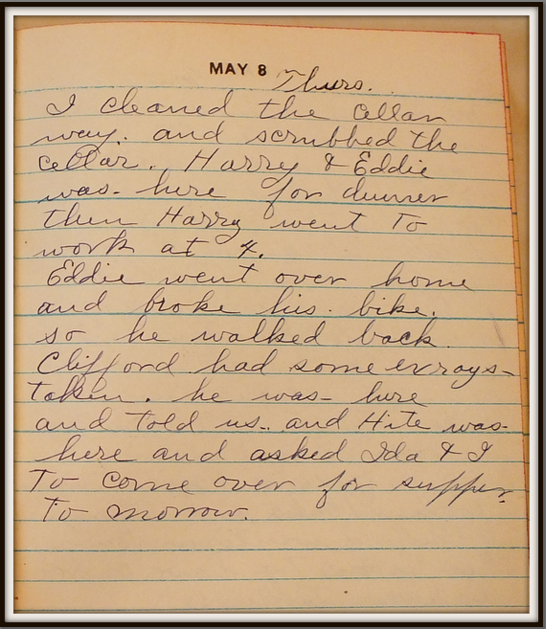 MAY 8 Thurs.
I cleaned the cellar
way. and scrubbed the
cellar. Harry & Eddie
was- here for dinner
then Harry went to
work at 4.
Eddie went over home
and broke his bike.
so he walked back.
Clifford had some exrays-
taken. he was- here
and told us. and Hite was-
here and asked Ida & I
To come over for supper
To morrow.